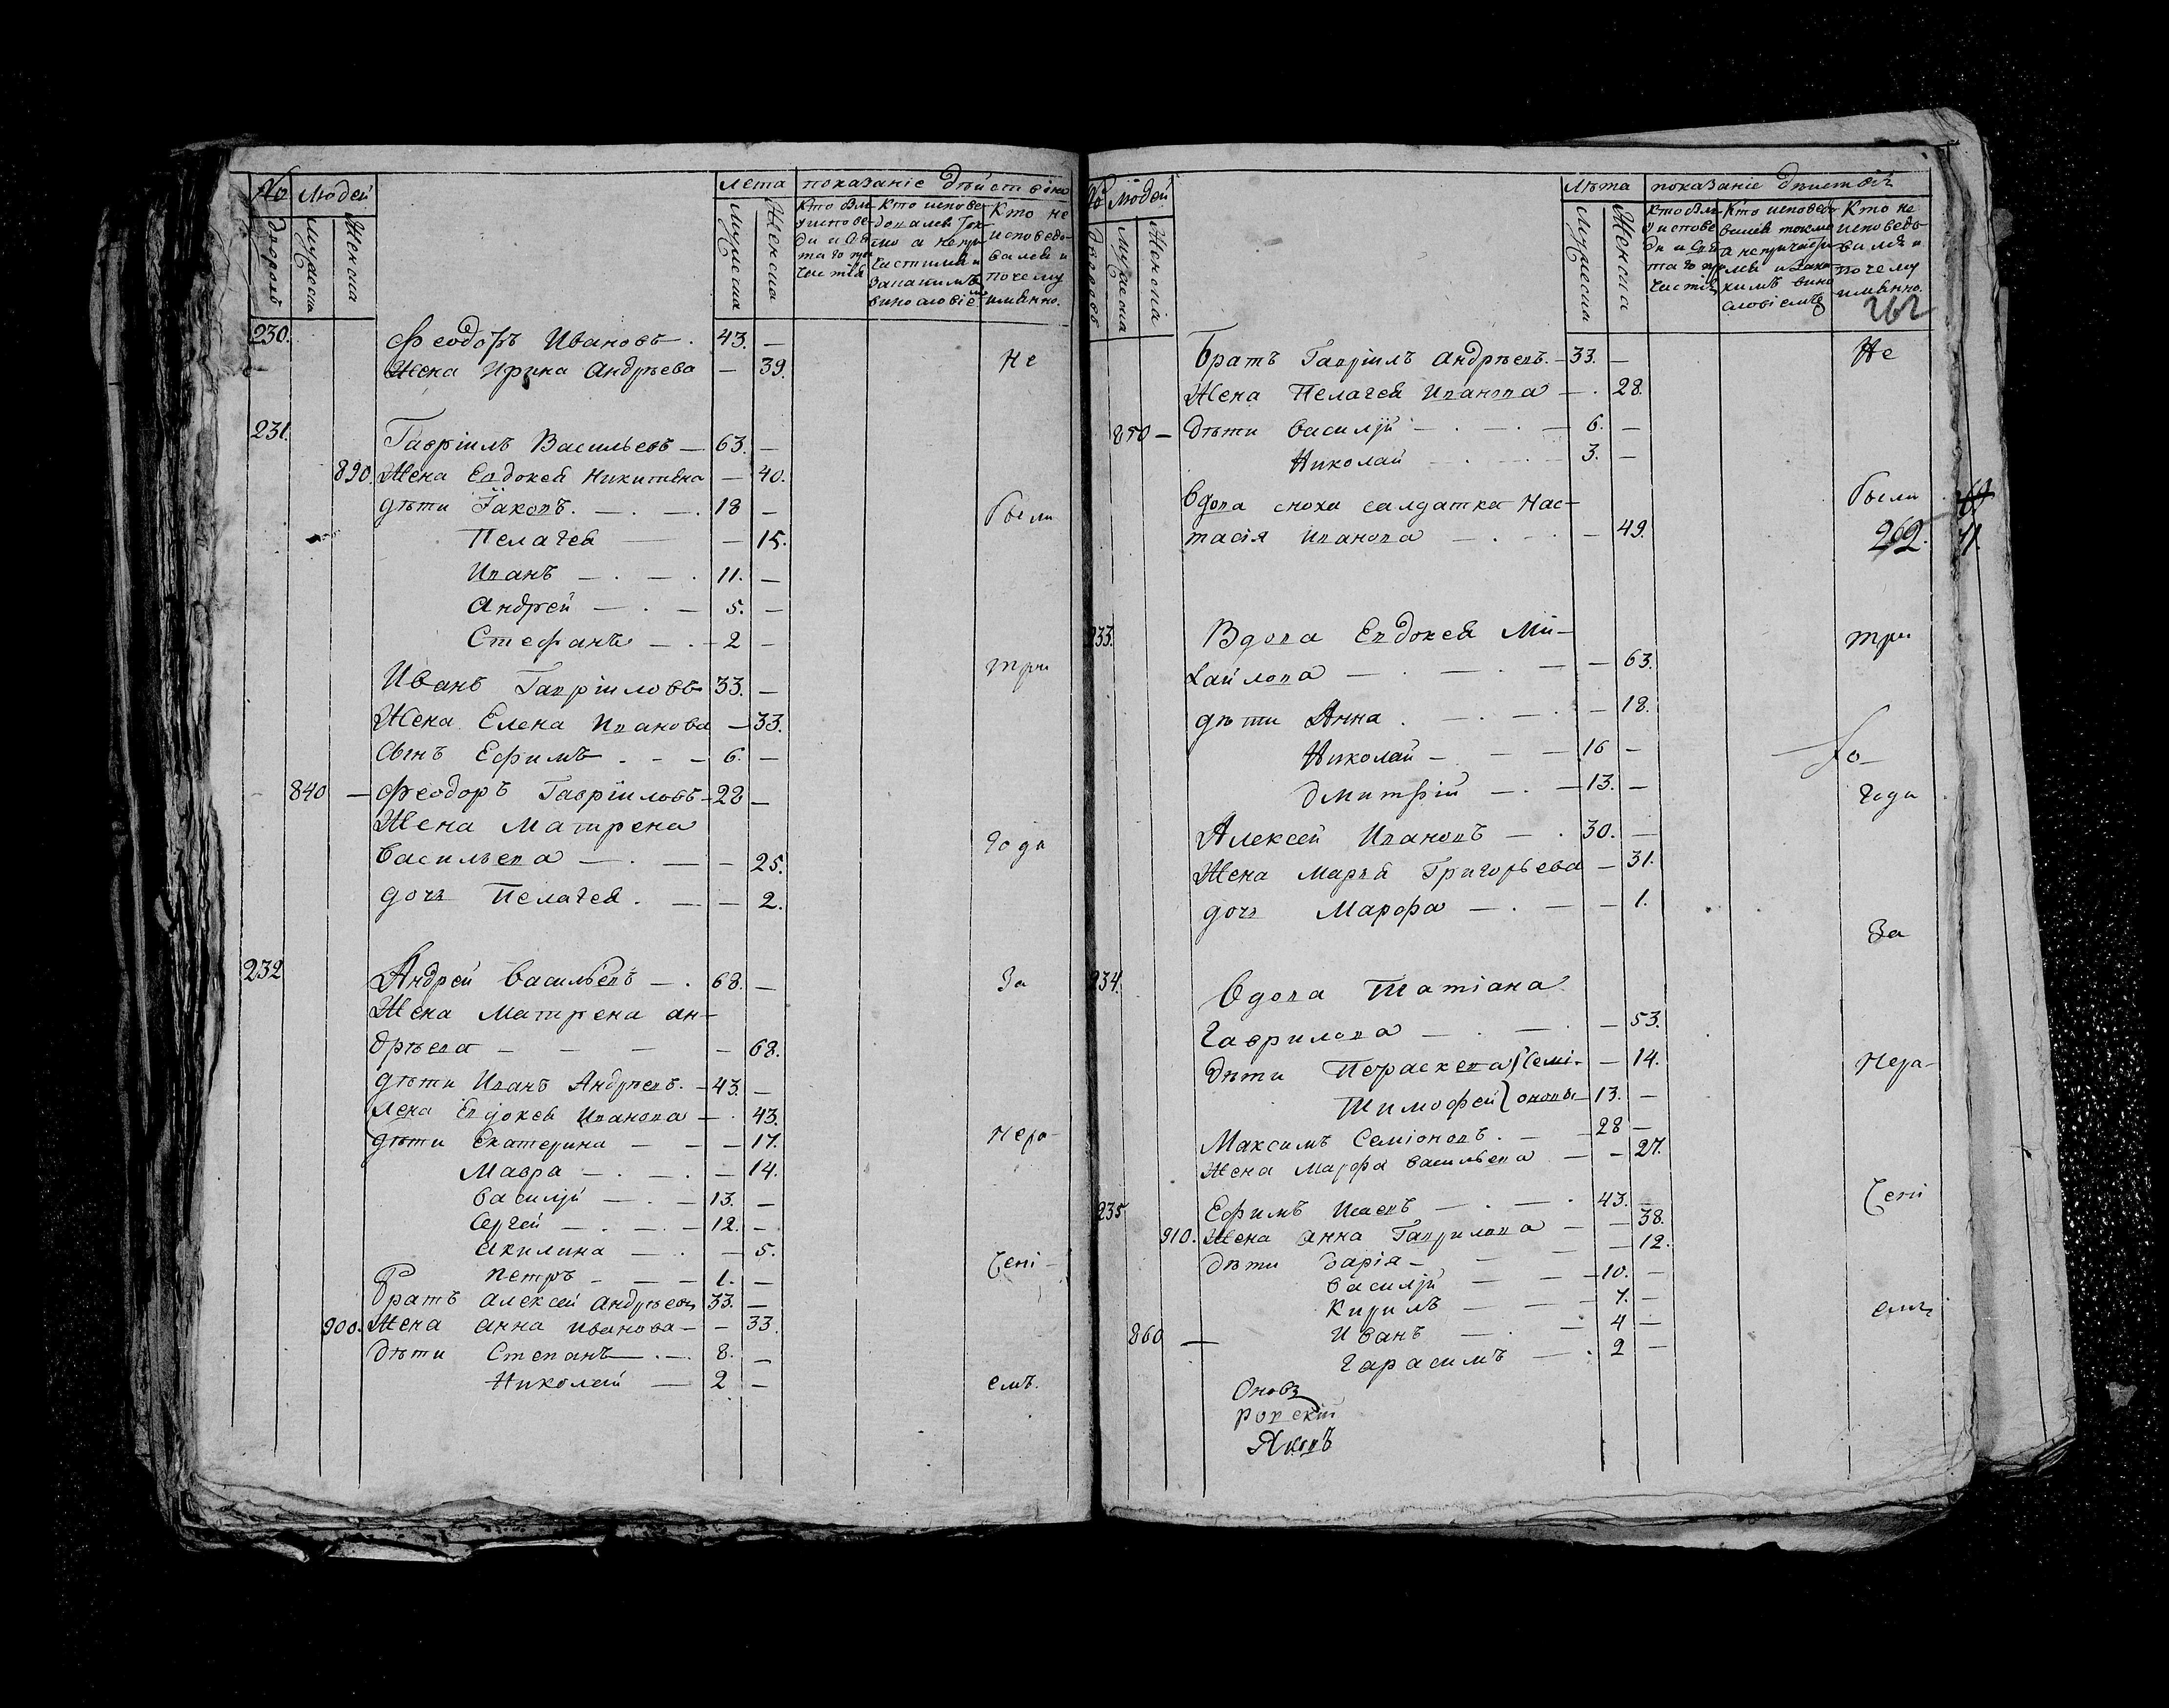 № Людей Лета показаніе дѣйствія
дворовъ Мужеска Женска Мужеска Женска
Кто не исповедовался и почему имянно.
230. Феодоръ Ивановъ. 43. —
Жена Ирина Андрѣева — 39. Не
231. Гавріилъ Васильевъ — 63. —
890. Жена Евдокея Никитина — 40.
дѣти Іаковъ. — . — . 18 — были
Пелагея — — 15.
Иванъ — . — . 11. —
Андрей — . — 5. —
Стефанъ — . — 2 —
три
Иванъ Гавріиловъ 33. —
Жена Елена Иванова — 33.
сынъ Ефимъ . — — 6. —
840 — Феодоръ Гавріиловъ — 28 —
Жена Матрена
Васильева — . — — 25. года
дочь Пелагея . — — 2.
232 Андрей Васильевъ — . 68. — За
Жена Матрена ан-
дрѣева — — — — 68.
дѣти Иванъ Андрѣевъ. — 43. —
жена Евдокея Иванова — . 43.
дѣти Екатерина — — — 17. Нера-
Мавра — . — . — 14.
Василій — . — 13. —
Сергей — . — . — 12. —
Акилина — . — 5.
Петръ — — — 1. — дені-
братъ Алексей Андрѣевъ 33. —
900. Жена Анна Иванова — — 33.
дѣти Степанъ — . — . 8. —
Николай — 2 — емъ.
№ Людей Лѣта показаніе дѣиствій
дворовъ Мужеска Женска Мужеска Женска
Кто не исповедовался и почему имянно.
262
Братъ Гавріилъ Андрѣевъ. — 33. — Не
Жена Пелагея Иванова — . 28.
850 — дѣти Василій — . — . — 6. —
Николай — . — — 3. —
Вдова сноха салдатка Нас- были
тасія Иванова — . — . — 49. 262. 71.
233. Вдова Евдокея Ми- три
хайлова — . — . — — 63.
дѣти Анна . — . — . — 18.
Николай — . — — 16 —
Дмитрій — . — 13. — года
Алексей Ивановъ — . 30. —
Жена Марья Григорьева — 31.
дочь Марфа — . — — 1.
За
234. Вдова Татіана
Гаврилова — . — . — 53.
дѣти Параскева { Семі- — 14. Нера-
Тимофей { оновы — 13. —
Максимъ Семіоновъ. — — 28 —
Жена Марфа Васильева — — 27.
235 Ефимъ Исаевъ — . — . 43. — дені
910. Жена Анна Гаврилова — — 38.
дѣти Дарія — — — — 12.
Василій — — — 10. —
Кирилъ — — — 7. — емъ
860 — Иванъ — . — 4 —
Гарасимъ — . 2 —
Яковъ